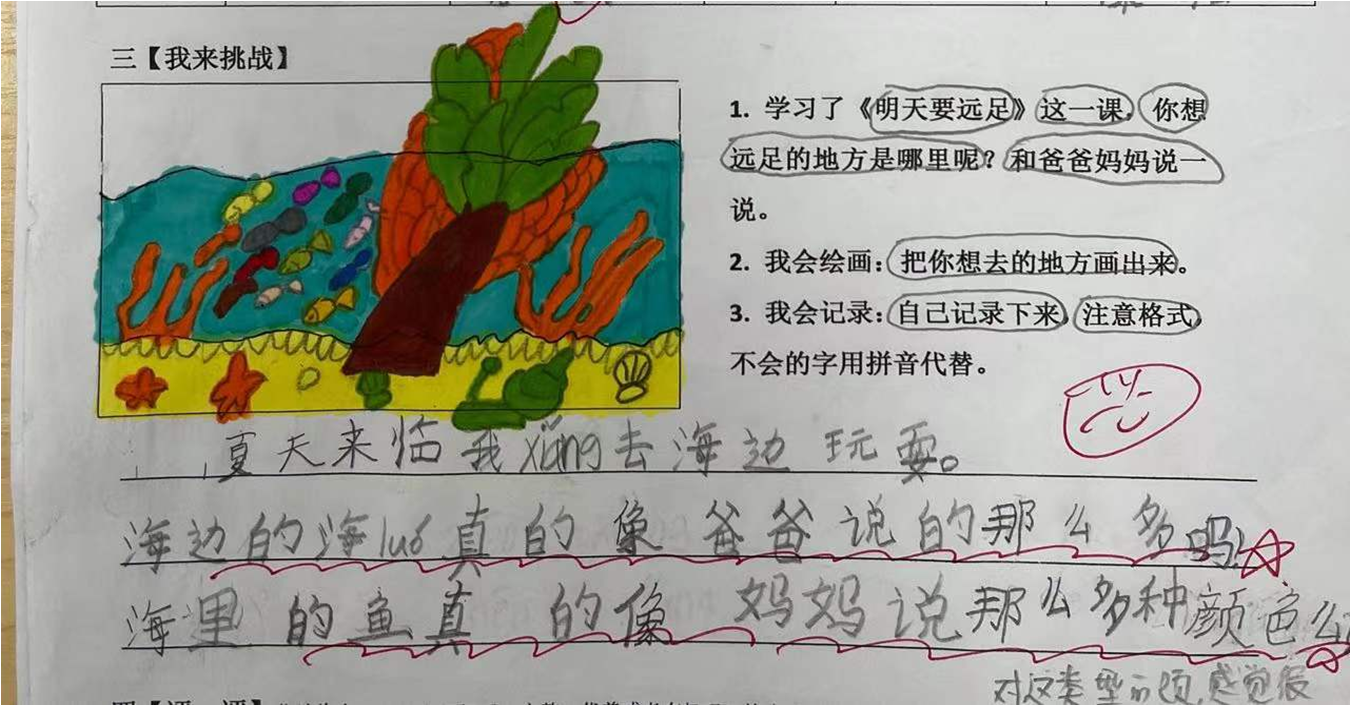 三【我来挑战】
1. 学习了《明天要远足》这一课，你想
远足的地方是哪里呢？和爸爸妈妈说一
说。
2. 我会绘画：把你想去的地方画出来。
3. 我会记录：自己记录下来，注意格式，
不会的字用拼音代替。
夏天来临我xiǎng去海边玩耍。
海边的海luó真的像爸爸说的那么多吗！
海里的鱼真的像妈妈说那么多种颜色么
对这类型的题，感觉很